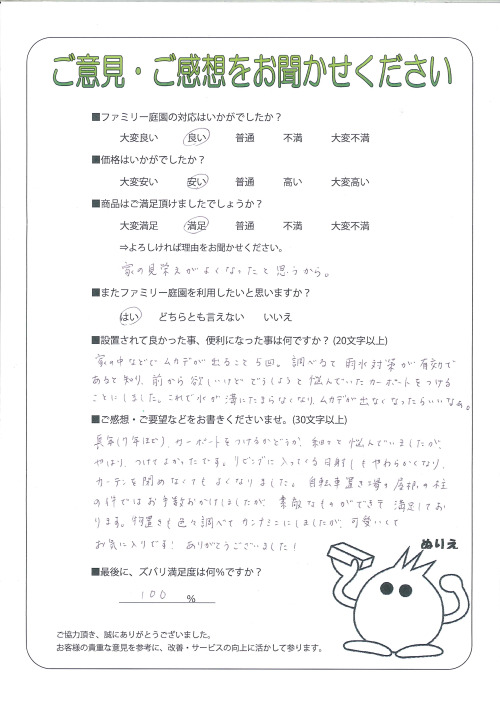 ご意見・ご感想をお聞かせください
■ファミリー庭園の対応はいかがでしたか？
大変良い 良い 普通 不満 大変不満
■価格はいかがでしたか？
大変安い 安い 普通 高い 大変高い
■商品はご満足頂けましたでしょうか？
大変満足 満足 普通 不満 大変不満
⇒よろしければ理由をお聞かせください。
家の見栄えがよくなったと思うから。
■またファミリー庭園を利用したいと思いますか？
はい どちらとも言えない いいえ
■設置されて良かった事、便利になった事は何ですか？(20文字以上)
家の中などでムカデが出ること5回。調べると雨水対策が有効で
あると知り、前から欲しいけどどうしようと悩んでいたカーポートをつける
ことにしました。これで水が溝にたまらなくなり、ムカデが出なくなったらいいなぁ。
■ご感想・ご要望などをお書きくださいませ。(30文字以上)
長年(7年ほど)、カーポートをつけるかどうか、悩んでいましたが、
やはり、つけてよかったです。リビングに入ってくる日射しもやわらかくなり、
カーテンを閉めなくてもよくなりました。自転車置き場の屋根の柱
の件ではお手数おかけしましたが、素敵なものができて満足してお
ります。物置きも色々調べてカンナミニにしましたが、可愛いくて
お気に入りです！ありがとうございました！
ぬりえ
■最後に、ズバリ満足度は何％ですか？
100 ％
ご協力頂き、誠にありがとうございました。
お客様の貴重な意見を参考に、改善・サービスの向上に活かして参ります。